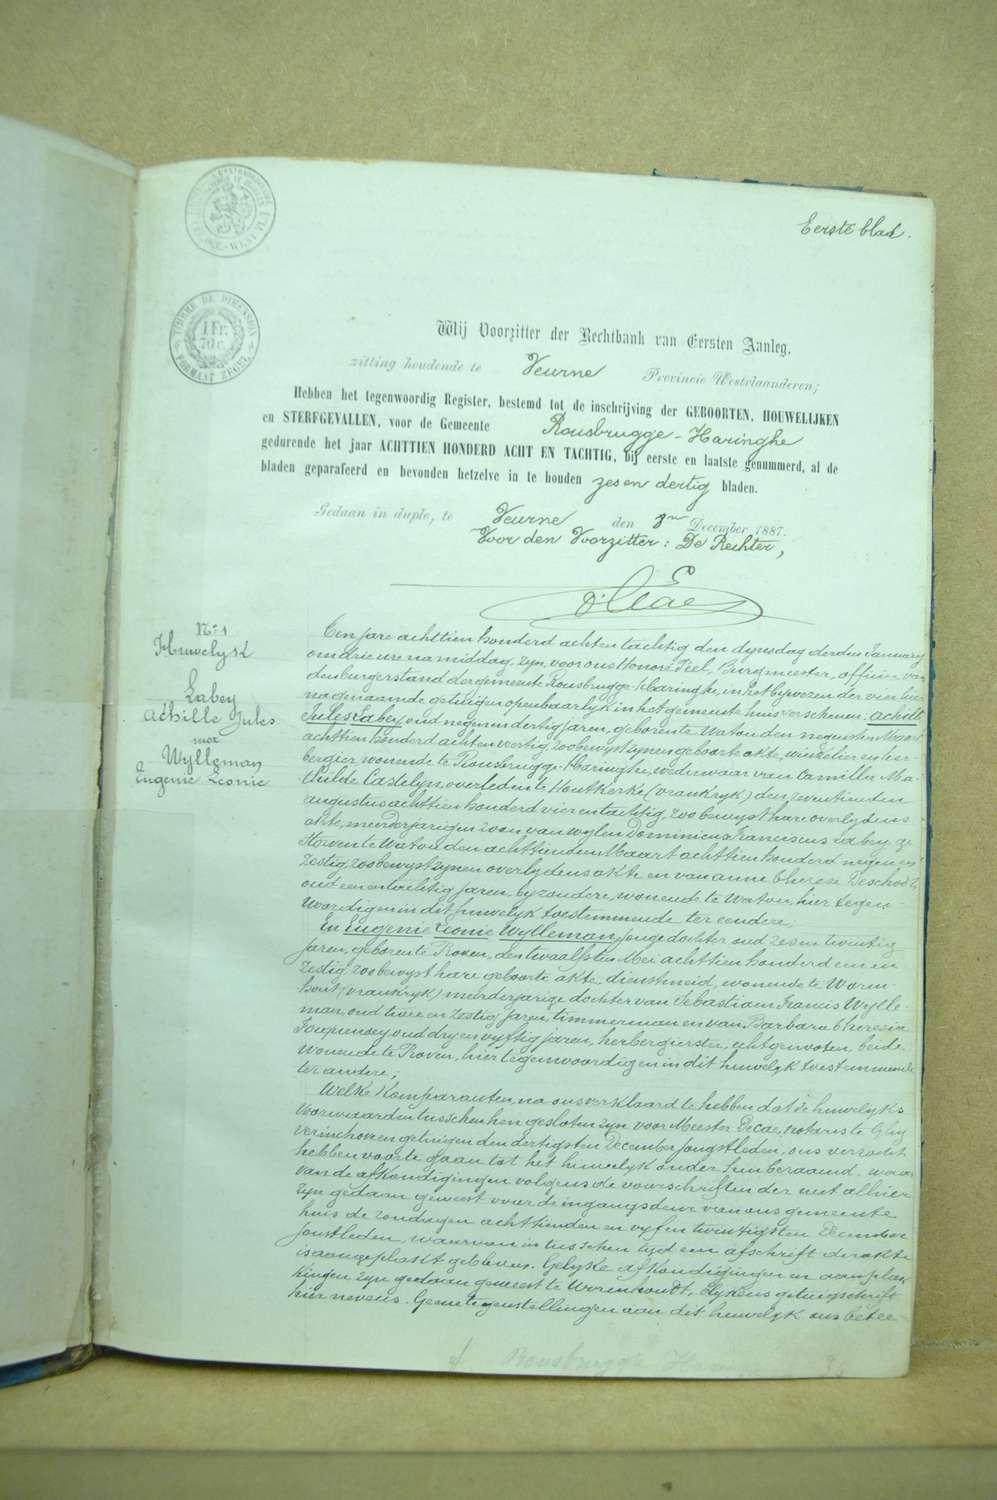 Eerste blad.
TIMBRE DE DIMENSION
1 Fr.
70 c.
FORMAAT ZEGEL
Wij Voorzitter der Rechtbank van Eersten Aanleg,
zitting houdende te Veurne Provincie Westvlaanderen;
Hebben het tegenwoordig Register, bestemd tot de inschrijving der GEBOORTEN, HOUWELIJKEN
en STERFGEVALLEN, voor de Gemeente Rousbrugge-Haringhe
gedurende het jaar ACHTTIEN HONDERD ACHT EN TACHTIG, bij eerste en laatste genummerd, al de
bladen geparafeerd en bevonden hetzelve in te houden zes en dertig bladen.
Gedaan in duplo, te Veurne den December 1887.
Voor den Voorzitter: De Rechter,
No 1
Huwelyk
Labey
Achille Jules
met
Wylleman
Eugenie Leonie
Ten jare achttien honderd acht en tachtig den dynsdag derden January
om drie ure namiddag, zyn, voor ons Honoré Feel, Burgmeester, officier van
den burgerstand der gemeente Rousbrugge-Haringhe, in het bywezen der vier hier
nagenaamde getuigen openbaarlyk in het gemeentehuis verschenen: Achille
Jules Labey, oud negen en dertig jaren, geboren te Watou den negensten Maart
achttien honderd acht en veertig, zoo bewyst zynen geboorte akte, winkelier en her-
bergier wonende te Rousbrugge-Haringhe, weduwaar van Camiller Ma-
thilde Castelyn, overleden te Houtkerke (vrankryk) den zeventienden
augustus achttien honderd vier en tachtig, zoo bewyst hare overlydens
akte, meerderjarigen zoon van wylen Dominicus Franciscus Labey, ge-
storven te Watou den achttienden Maart achttien honderd negen en
zestig, zoo bewyst zynen overlydens akte en van Anne Therese Deschodt,
oud een en tachtig jaren, byzondere, wonende te Watou, hier tegen-
woordig en in dit huwelyk toestemmende ter eendere;
En Eugenie Leonie Wylleman, jonge dochter oud zes en twintig
jaren, geboren te Proven, den twaalfsten Mei achttien honderd een en
zestig, zoo bewyst hare geboorte akte, dienstmeid, wonende te Worm-
hout (vrankryk) meerderjarige dochter van Sebastiaen Francis Wylle-
man, oud twee en zestig jaren, timmerman en van Barbara Theresia
oud dry en vyftig jaren, herbergierster, echtgenooten, beide
wonende te Proven, hier tegenwoordig en in dit huwelyk toestemmende
ter andere;
Welke Komparanten, na ons verklaard te hebben dat de huwelyks
voorwaarden tusschen hen gesloten zyn voor Meester Decae, notaris te Ghy
verinchove en getuigen den dertigsten December jongstleden, ons verzocht
hebben voort te gaan tot het huwelyk onder hun beraamd waar-
van de afkondigingen volgens de voorschriften der wet alhier
zyn gedaan geweest voor de ingangsdeur van ons gemeente
huis de zondagen achttienden en vyf en twintigsten December
jonstleden, waarvan in tusschen tyd een afschrift der akte
is aangeplakt gebleven. Gelyke afkondigingen en aanplak-
kingen zyn gedaan geweest te Wormhoudt, blykens getuigschrift
hier nevens. Geene tegenstellingen aan dit huwelyk ons betee-
Rousbrugge